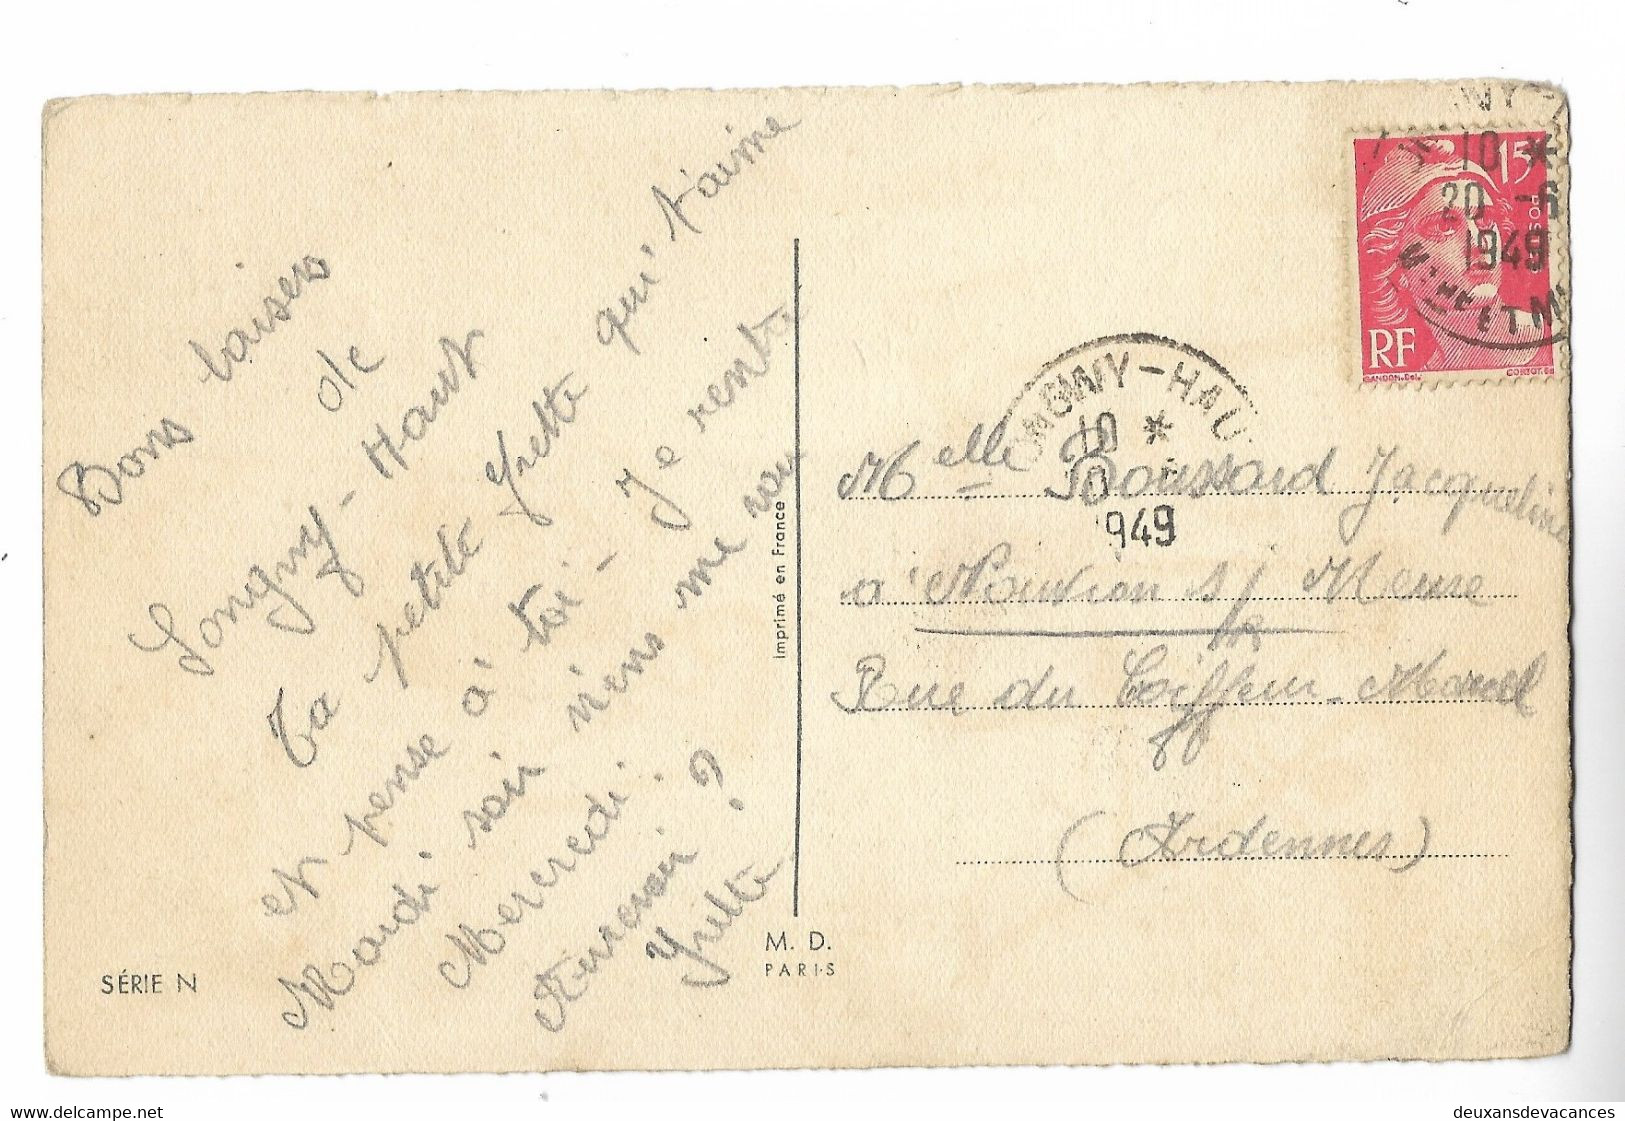 Bons baisers
de
Longwy-Haut
Ta petite Yvette qui t'aime
et pense à toi - Je rentre
Mardi soir viens me voir
Mercredi.
Aurevoir ?
Yvette
SÉRIE N
Imprimé en France
M. D.
PARIS
15
POSTES
RF
GANDON.Del.
CORTOT.Sc
10 *
20 -6
1949
LONGWY-HAUT
10 *
20
1949
Melle Boussard Jacqueline
à Nouvion s/ Meuse
Rue du Coiffeur-Marcel
(Ardennes)
www.delcampe.net
deuxansdevacances